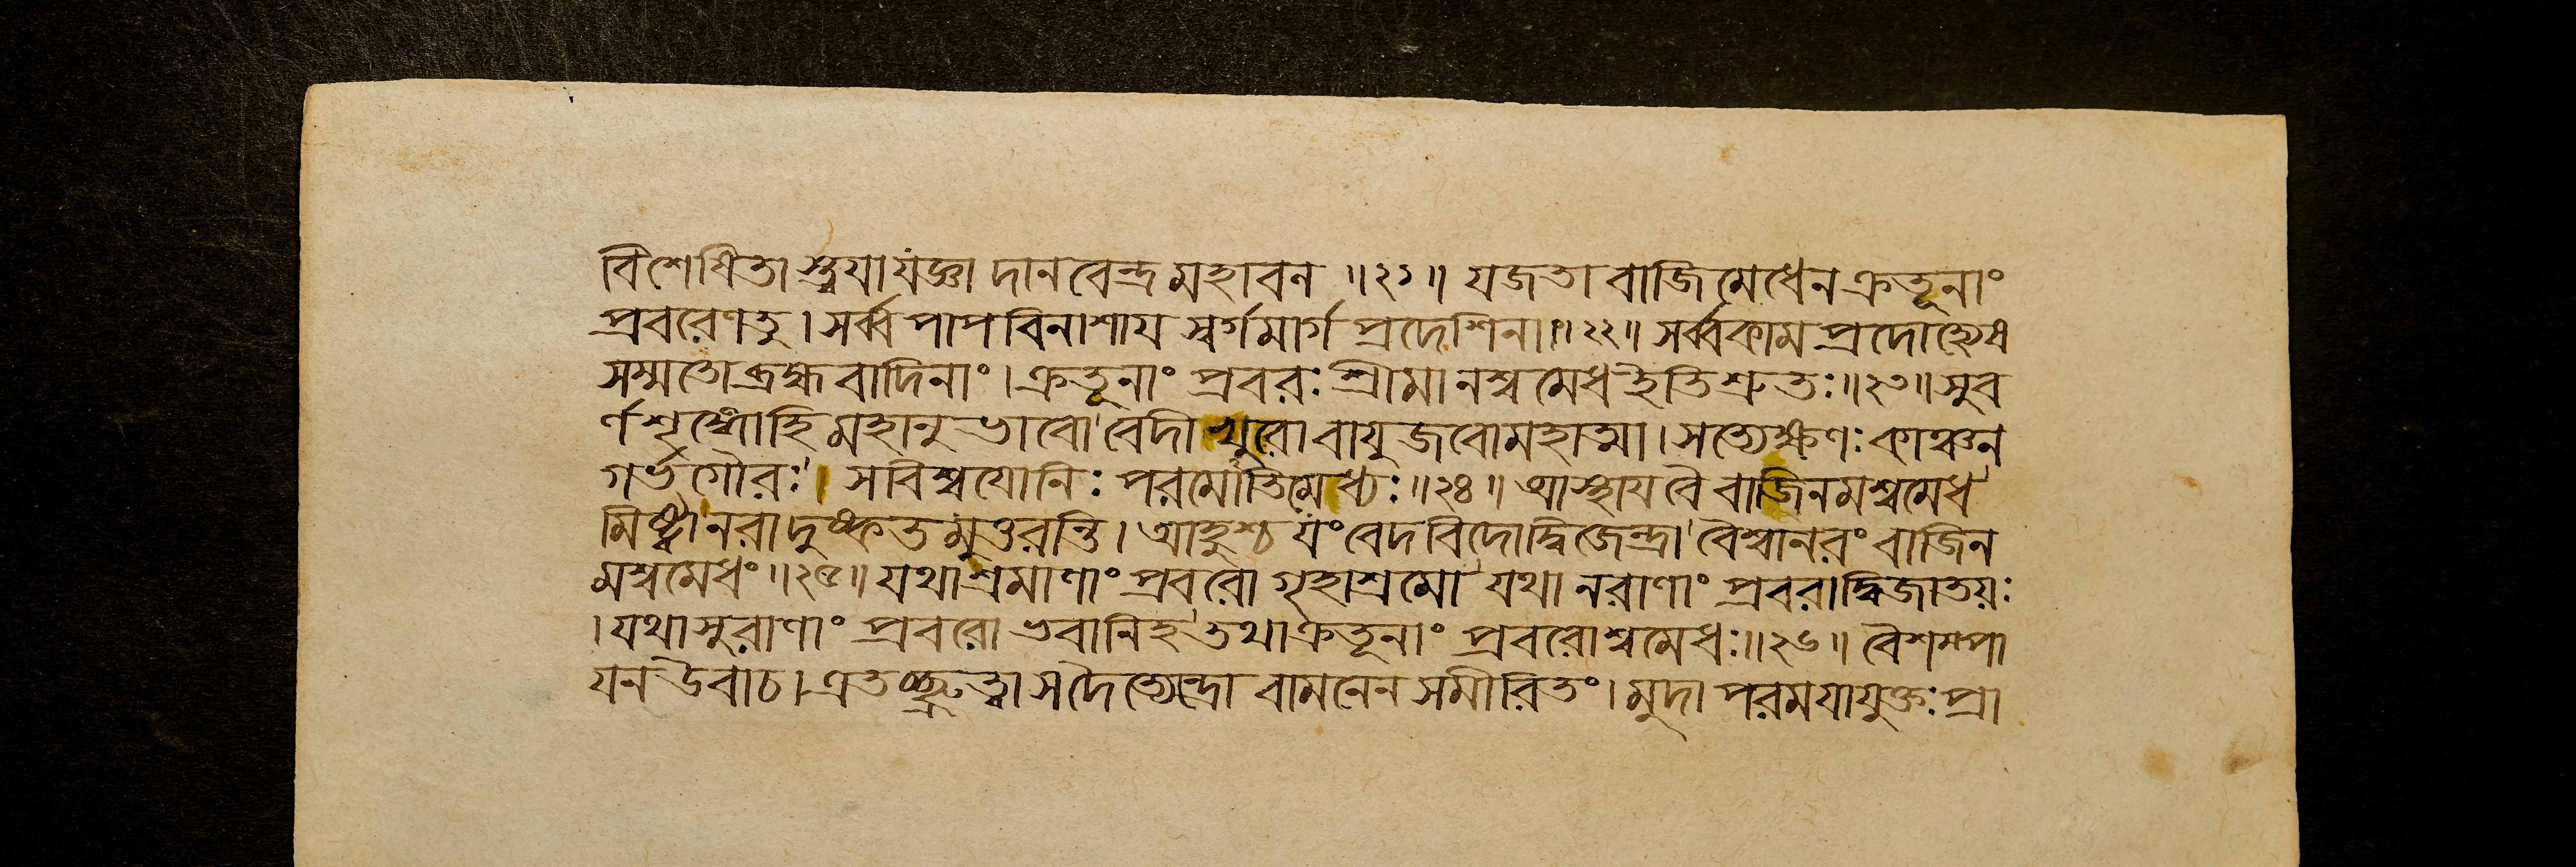 বিশেষিতাস্ত্বযাযজ্ঞা দানবেন্দ্র মহাবন ॥২১॥ যজতা বাজিমেধেন ক্রতূনাং
প্রবরেণতু । সর্ব্ব পাপ বিনাশায স্বর্গমার্গ প্রদেশিনা ॥২২॥ সর্ব্বকাম প্রদোহ্যেষ
সম্মতোব্রহ্ম বাদিনাং । ক্রতূনাং প্রবরঃ শ্রীমানশ্বমেধ ইতিশ্রুতঃ ॥২৩॥ সুব
র্ণশৃঙ্গোহি মহানুভাবো বেদীখুরো বাযুজবোমহাত্মা । সত্যেক্ষণঃ কাঞ্চন
গর্ভগৌরঃ । সবিশ্বযোনিঃ পরমোতিমেধ্যঃ ॥২৪॥ আস্থাযবৈ বাজিনমশ্বমেধ
মিষ্ট্বানরাদুষ্কৃতমুত্তরন্তি । আহুশ্চ যংবেদবিদোদ্বিজেন্দ্রা বৈশ্বানরং বাজিন
মশ্বমেধং ॥২৫॥ যথাশ্রমাণাং প্রবরো গৃহাশ্রমো যথা নরাণাং প্রবরাদ্বিজাতয়ঃ
। যথাসুরাণাং প্রবরো ভবানিহ তথাক্রতূনাং প্রবরোশ্বমেধঃ ॥২৬॥ বৈশম্পা
যন উবাচ । এতচ্ছ্রুত্বা সদৈত্যেন্দ্রো বামনেন সমীরিতং । মুদা পরমযাযুক্তঃ প্রা